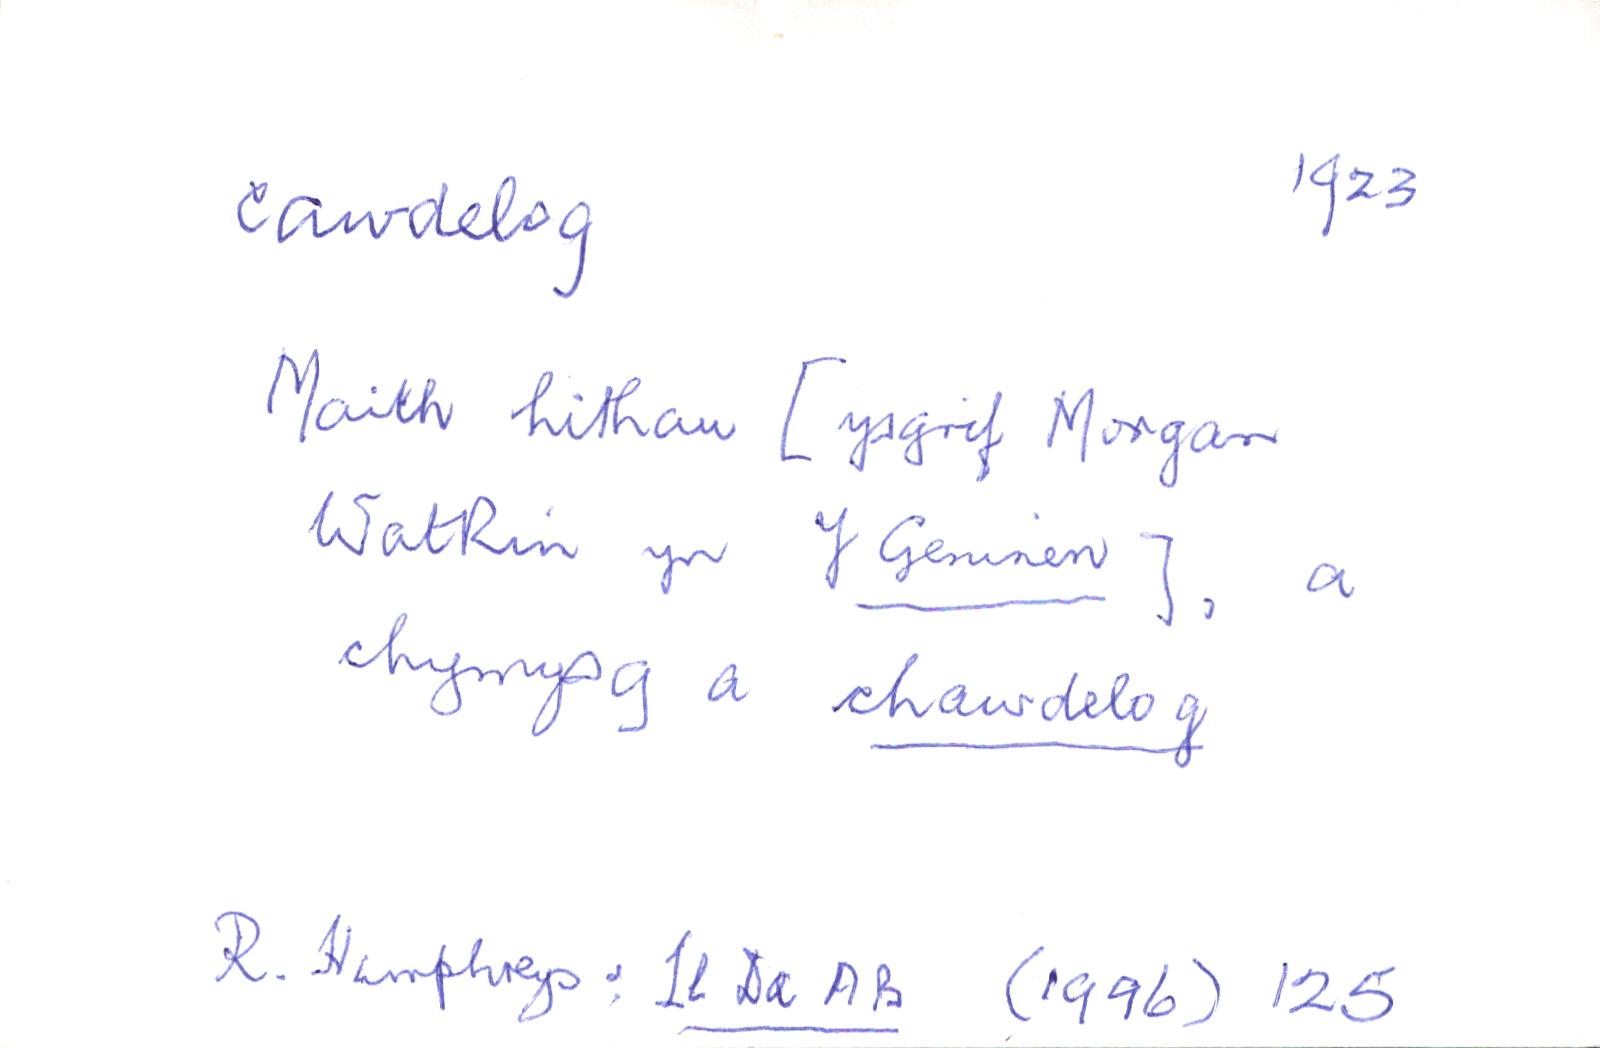 cawdelog 1923
Maith hithau [ysgrif Morgan
Watkin yn Y Geninen], a
chymysg a chawdelog
R. Humphreys: Ll Da AB (1996) 125